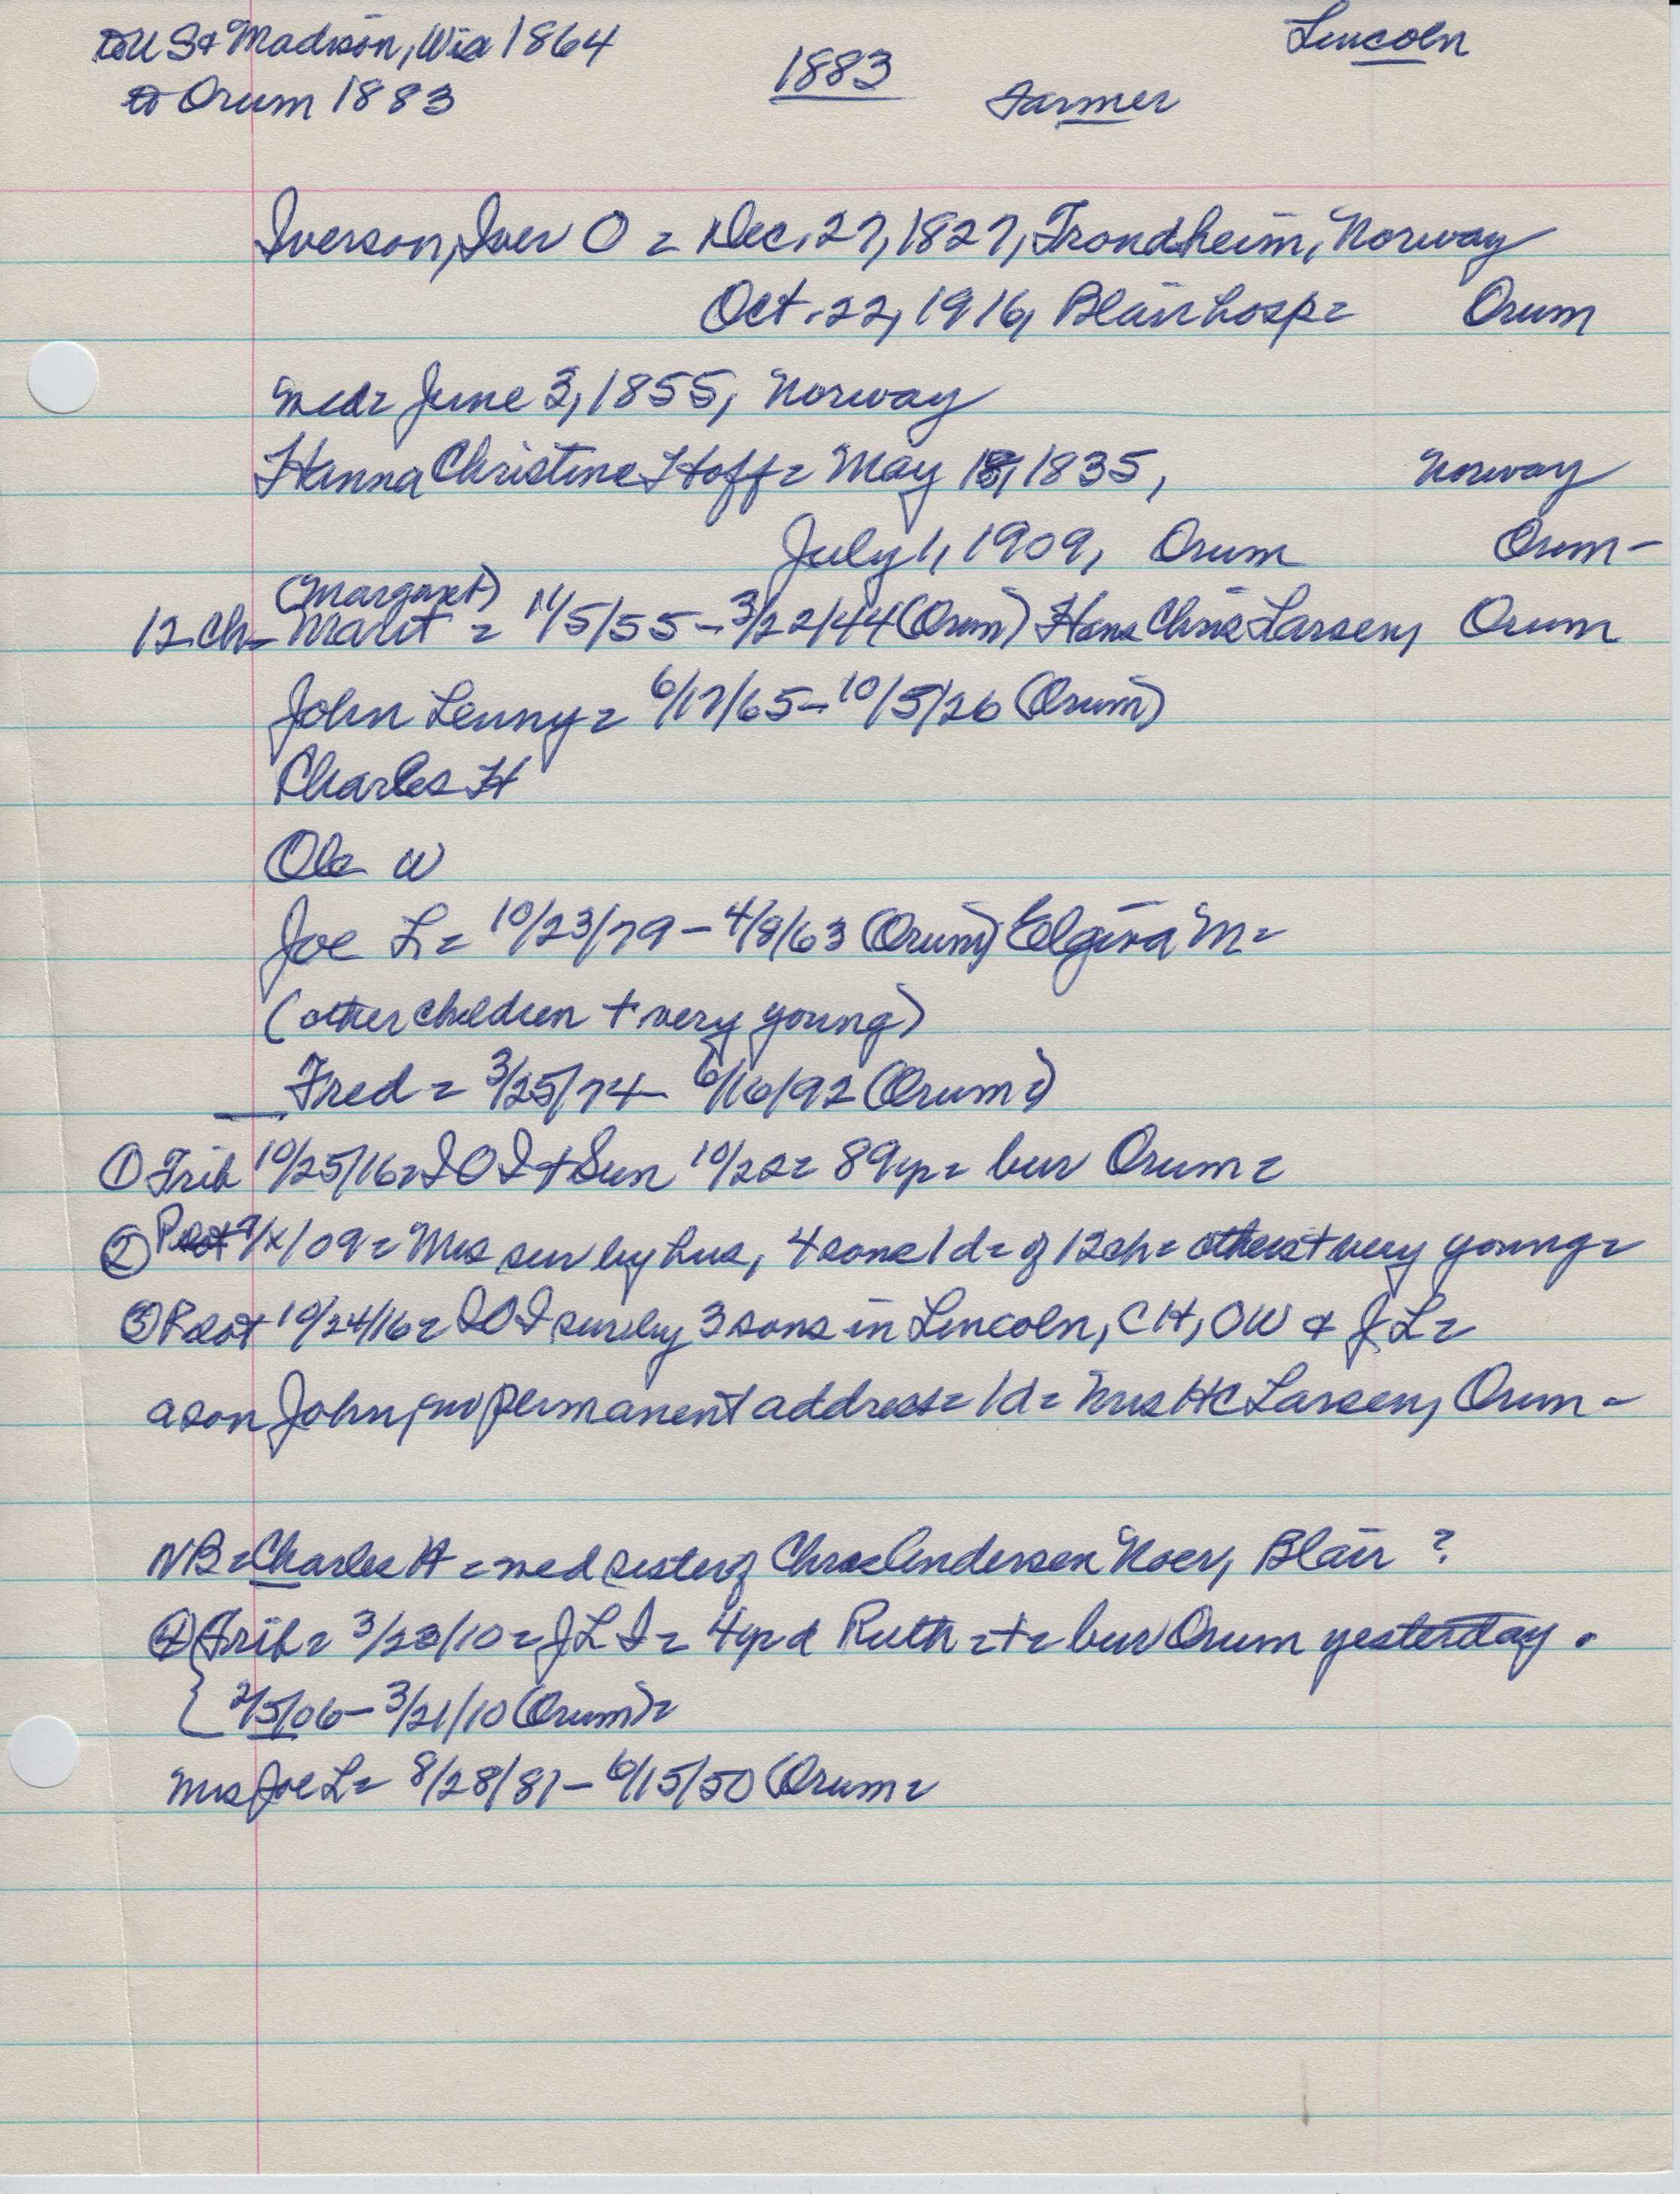 to U S & Madison, Wis 1864
Lincoln
to Orum 1883
1883
Farmer
Iverson, Iver O = Dec. 27, 1827, Trondheim, Norway
Oct. 22, 1916, Blair hosp = Orum
med = June 3, 1855, Norway
Hanna Christine Hoff = May 18, 1835, Norway
July 1, 1909, Orum Orum -
(Margaret)
12 ch = Marit = 11/5/55 - 3/22/44 (Orum) Hans Chris Larsen, Orum
John Lenny = 6/17/65 - 10/5/26 (Orum)
Charles H
Ole W
Joe L = 10/23/79 - 4/8/63 (Orum) Elgiva M =
(other children + very young)
Fred = 3/25/74 - 6/16/92 (Orum)
① Trib 10/25/16 = I O I + Sun 10/22 = 89 yr = bur Orum =
② Pilot 7/x/09 = Mrs sur by hus, 4 sons 1 d = of 12 ch = others + very young =
③ Pilot 10/24/16 = I O I sur by 3 sons in Lincoln, C H, O W & J L =
a son John, no permanent address = 1 d = Mrs H C Larsen, Orum -
NB = Charles H = med sister of Chris Andersen Noer, Blair ?
④ Trib = 3/23/10 = J L I = 4 yr d Ruth = + = bur Orum yesterday.
2/5/06 - 3/21/10 (Orum) =
Mrs Joe L = 8/28/81 - 6/15/50 (Orum =